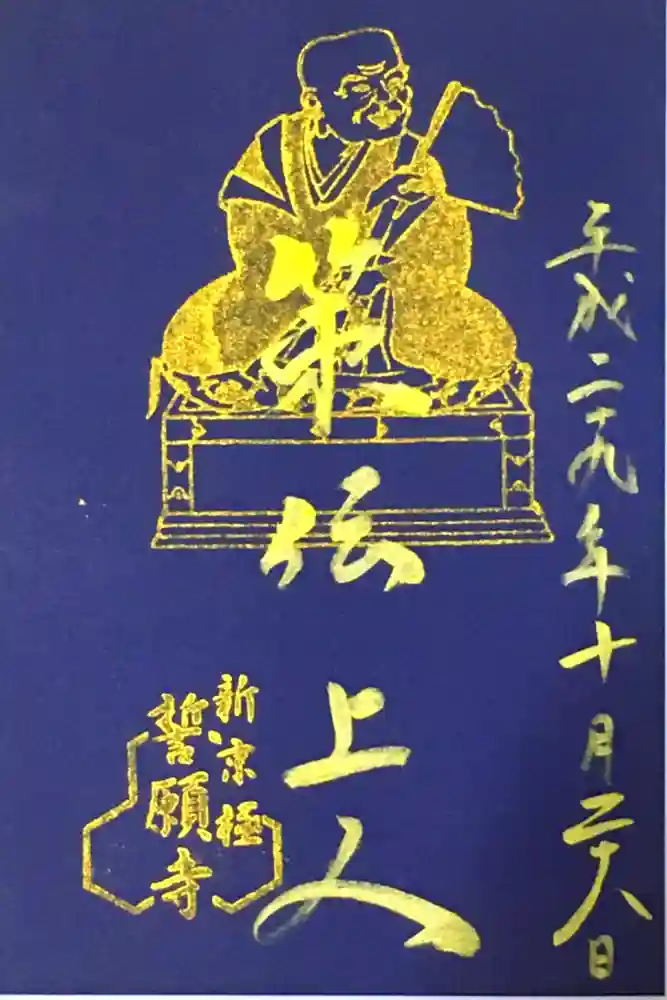 平成二十九年十月二十八日
策伝上人
新京極
誓願寺